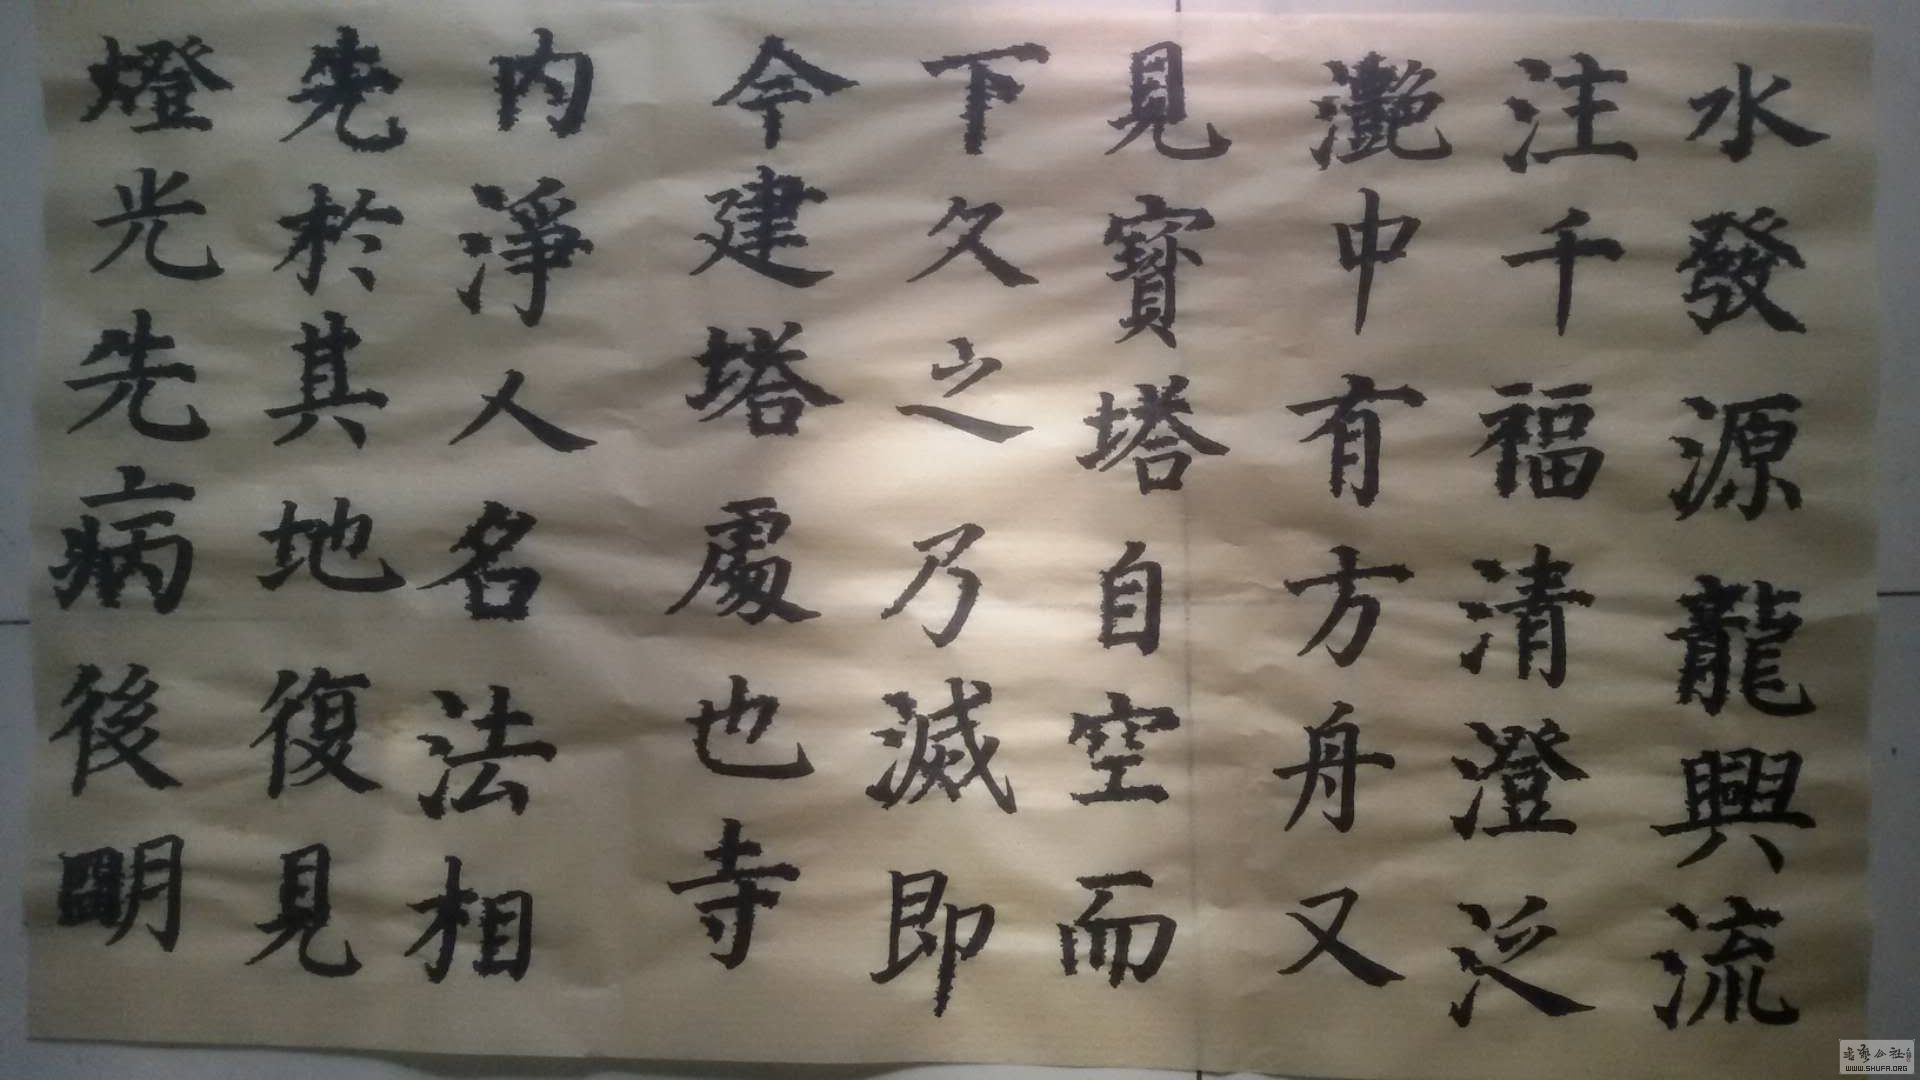 水發源龍興流
注千福清澄泛
灔中有方舟又
見寶塔自空而
下久之乃滅即
今建塔處也寺
内淨人名法相
先於其地復見
燈光先病後明
書藝公社
WWW.SHUFA.ORG